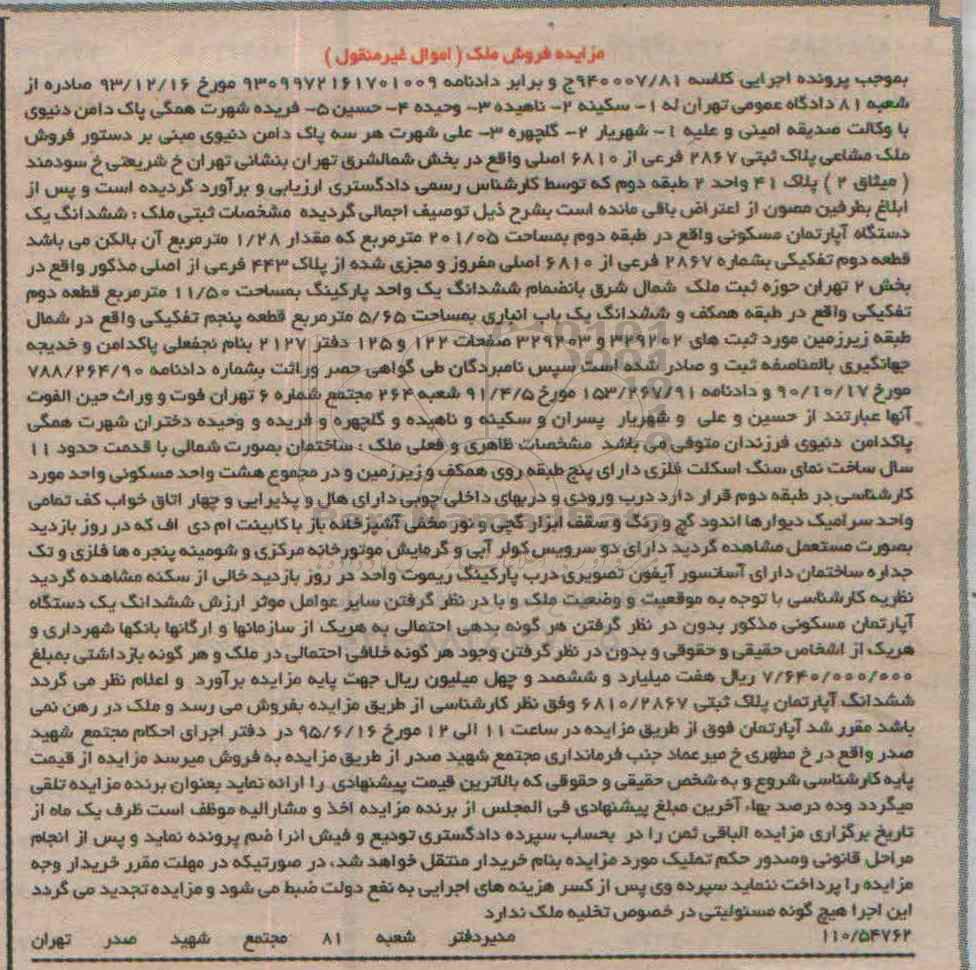 مزایده فروش ملک ( اموال غیرمنقول )
بموجب پرونده اجرایی کلاسه ۹۴۰۰۰۷/۸۱ج و برابر دادنامه ۹۳۰۹۹۷۲۱۶۱۷۰۱۰۰۹ مورخ ۹۳/۱۲/۱۶ صادره از
شعبه ۸۱ دادگاه عمومی تهران له ۱- سکینه ۲- ناهیده ۳- وحیده ۴- حسین ۵- فریده شهرت همگی پاک دامن دنیوی
با وکالت صدیقه امینی و علیه ۱- شهریار ۲- گلچهره ۳- علی شهرت هر سه پاک دامن دنیوی مبنی بر دستور فروش
ملک مشاعی پلاک ثبتی ۲۸۶۷ فرعی از ۶۸۱۰ اصلی واقع در بخش شمالشرق تهران بنشانی تهران خ شریعتی خ سودمند
( میثاق ۲ ) پلاک ۴۱ واحد ۲ طبقه دوم که توسط کارشناس رسمی دادگستری ارزیابی و برآورد گردیده است و پس از
ابلاغ بطرفین مصون از اعتراض باقی مانده است بشرح ذیل توصیف اجمالی گردیده مشخصات ثبتی ملک : ششدانگ یک
دستگاه آپارتمان مسکونی واقع در طبقه دوم بمساحت ۲۰۱/۰۵ مترمربع که مقدار ۱/۲۸ مترمربع آن بالکن می باشد
قطعه دوم تفکیکی بشماره ۲۸۶۷ فرعی از ۶۸۱۰ اصلی مفروز و مجزی شده از پلاک ۴۴۳ فرعی از اصلی مذکور واقع در
بخش ۲ تهران حوزه ثبت ملک شمال شرق بانضمام ششدانگ یک واحد پارکینگ بمساحت ۱۱/۵۰ مترمربع قطعه دوم
تفکیکی واقع در طبقه همکف و ششدانگ یک باب انباری بمساحت ۵/۶۵ مترمربع قطعه پنجم تفکیکی واقع در شمال
طبقه زیرزمین مورد ثبت های ۳۲۹۲۰۲ و ۳۲۹۲۰۳ صفحات ۱۲۲ و ۱۲۵ دفتر ۲۱۲۷ بنام نجفعلی پاکدامن و خدیجه
جهانگیری بالمناصفه ثبت و صادر شده است سپس نامبردگان طی گواهی حصر وراثت بشماره دادنامه ۷۸۸/۲۶۴/۹۰
مورخ ۹۰/۱۰/۱۷ و دادنامه ۱۵۳/۲۶۷/۹۱ مورخ ۹۱/۴/۵ شعبه ۲۶۴ مجتمع شماره ۶ تهران فوت و وراث حین الفوت
آنها عبارتند از حسین و علی و شهریار پسران و سکینه و ناهیده و گلچهره و فریده و وحیده دختران شهرت همگی
پاکدامن دنیوی فرزندان متوفی می باشد مشخصات ظاهری و فعلی ملک : ساختمان بصورت شمالی با قدمت حدود ۱۱
سال ساخت نمای سنگ اسکلت فلزی دارای پنج طبقه روی همکف و زیرزمین و در مجموع هشت واحد مسکونی واحد مورد
کارشناسی در طبقه دوم قرار دارد درب ورودی و دربهای داخلی چوبی دارای هال و پذیرایی و چهار اتاق خواب کف تمامی
واحد سرامیک دیوارها اندود گچ و رنگ و سقف ابزار گچی و نور مخفی آشپزخانه باز با کابینت ام دی اف که در روز بازدید
بصورت مستعمل مشاهده گردید دارای دو سرویس کولر آبی و گرمایش موتورخانه مرکزی و شومینه پنجره ها فلزی و تک
جداره ساختمان دارای آسانسور آیفون تصویری درب پارکینگ ریموت واحد در روز بازدید خالی از سکنه مشاهده گردید
نظریه کارشناسی با توجه به موقعیت و وضعیت ملک و با در نظر گرفتن سایر عوامل موثر ارزش ششدانگ یک دستگاه
آپارتمان مسکونی مذکور بدون در نظر گرفتن هر گونه بدهی احتمالی به هریک از سازمانها و ارگانها بانکها شهرداری و
هریک از اشخاص حقیقی و حقوقی و بدون در نظر گرفتن وجود هر گونه خلافی احتمالی در ملک و هر گونه بازداشتی بمبلغ
۷/۶۴۰/۰۰۰/۰۰۰ ریال هفت میلیارد و ششصد و چهل میلیون ریال جهت پایه مزایده برآورد و اعلام نظر می گردد
ششدانگ آپارتمان پلاک ثبتی ۶۸۱۰/۲۸۶۷ وفق نظر کارشناسی از طریق مزایده بفروش می رسد و ملک در رهن نمی
باشد مقرر شد آپارتمان فوق از طریق مزایده در ساعت ۱۱ الی ۱۲ مورخ ۹۵/۶/۱۶ در دفتر اجرای احکام مجتمع شهید
صدر واقع در خ مطهری خ میرعماد جنب فرمانداری مجتمع شهید صدر از طریق مزایده به فروش میرسد مزایده از قیمت
پایه کارشناسی شروع و به شخص حقیقی و حقوقی که بالاترین قیمت پیشنهادی را ارائه نماید بعنوان برنده مزایده تلقی
میگردد وده درصد بهاء آخرین مبلغ پیشنهادی فی المجلس از برنده مزایده اخذ و مشارالیه موظف است ظرف یک ماه از
تاریخ برگزاری مزایده الباقی ثمن را در بحساب سپرده دادگستری تودیع و فیش انرا ضم پرونده نماید و پس از انجام
مراحل قانونی وصدور حکم تملیک مورد مزایده بنام خریدار منتقل خواهد شد، در صورتیکه در مهلت مقرر خریدار وجه
مزایده را پرداخت ننماید سپرده وی پس از کسر هزینه های اجرایی به نفع دولت ضبط می شود و مزایده تجدید می گردد
این اجرا هیچ گونه مسئولیتی در خصوص تخلیه ملک ندارد
۱۱۰/۵۴۷۶۲ مدیردفتر شعبه ۸۱ مجتمع شهید صدر تهران